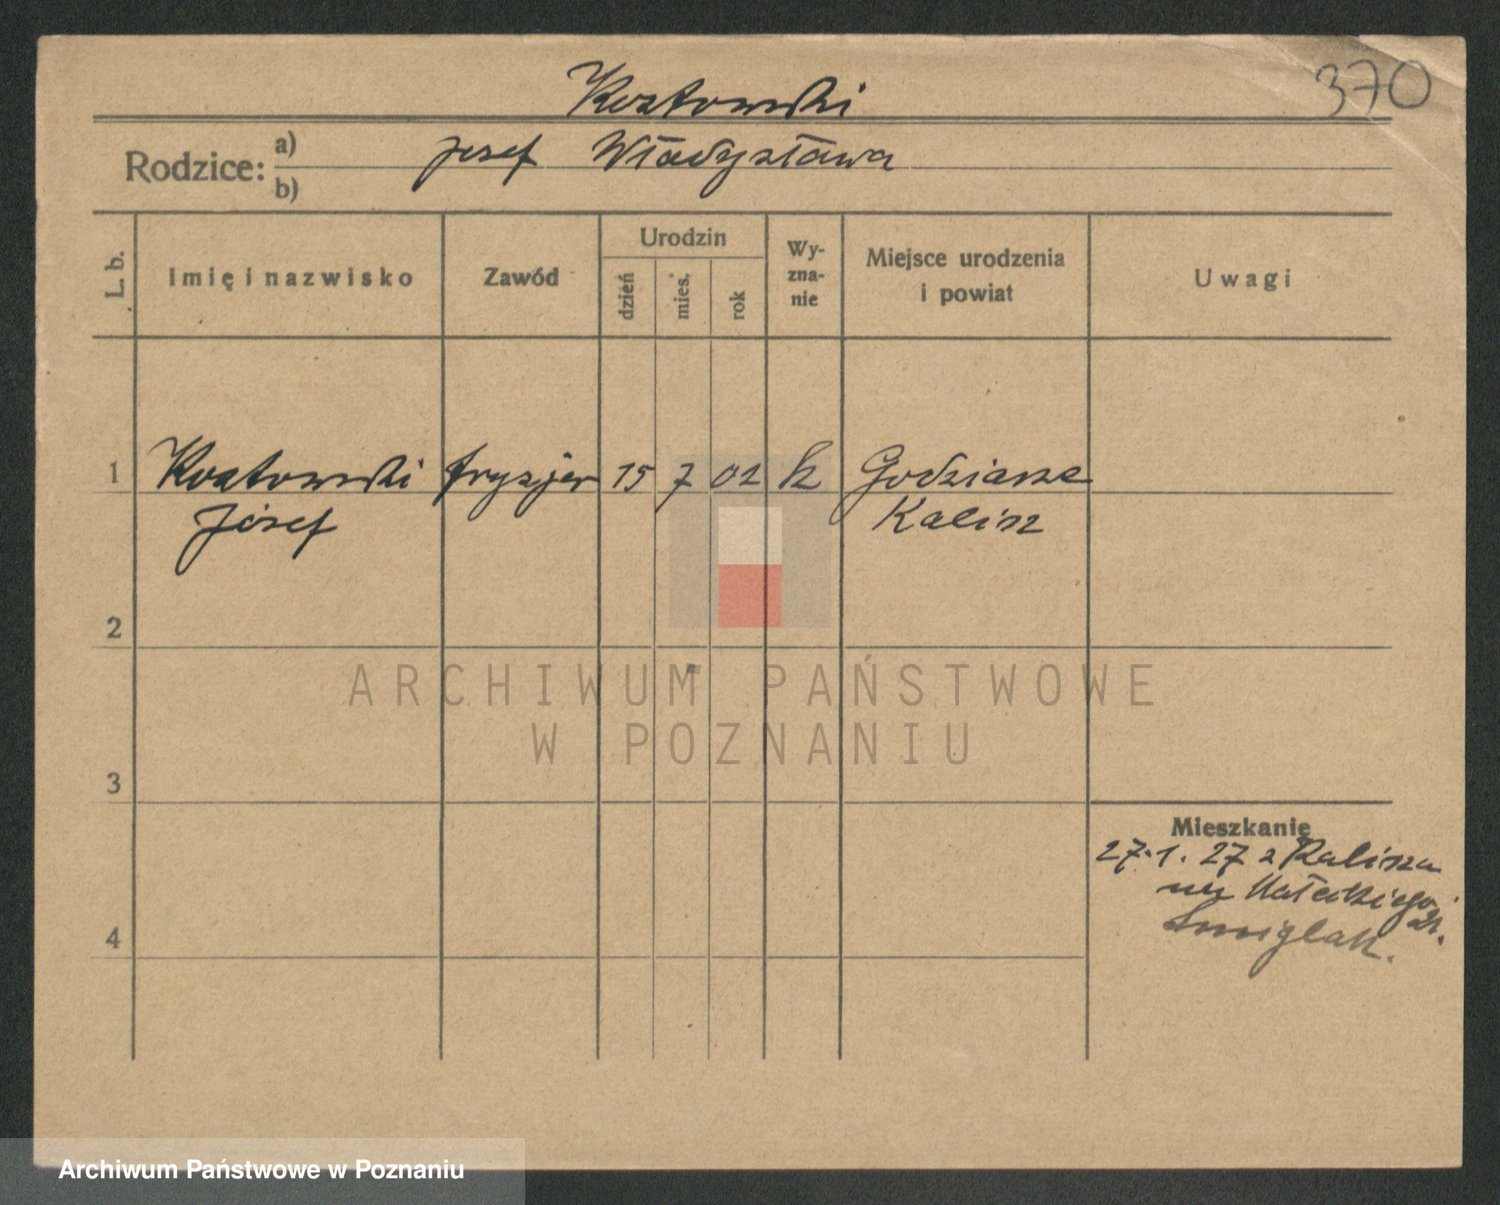 370
Kozłowski
Rodzice: a) Józef Władysława
b)
L. b.
Imię i nazwisko
Zawód
Urodzin
dzień
mies.
rok
Wy-
zna-
nie
Miejsce urodzenia
i powiat
Uwagi
1 Kozłowski fryzjer 15 7 02 k Godziesze
Józef Kalisz
2
ARCHIWUM PAŃSTWOWE
W POZNANIU
3
Mieszkanie
27.1.27 z Kalisza
Małeckiego 21.
4
Archiwum Państwowe w Poznaniu